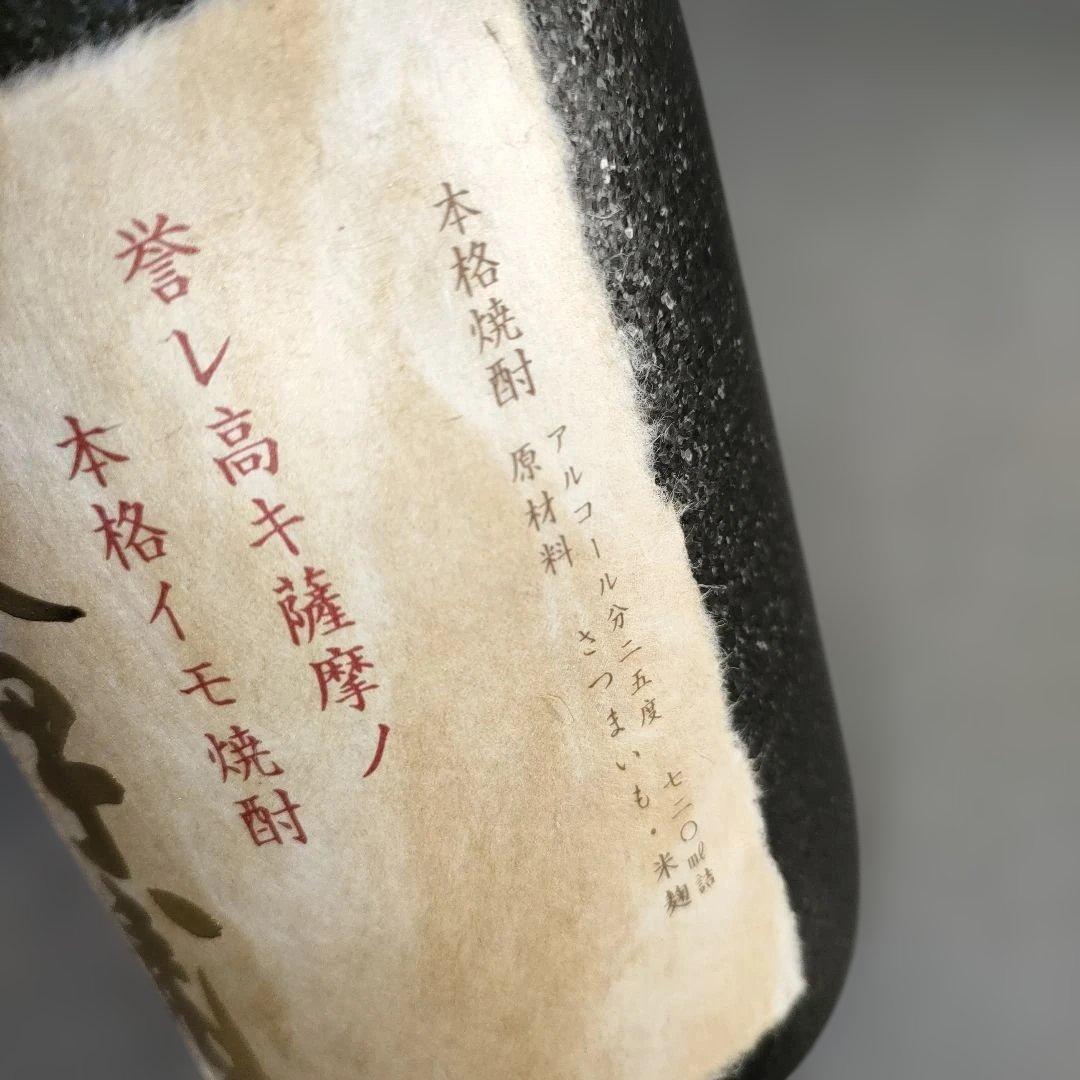 本格焼酎
アルコール分二五度 七二〇ml詰
原材料 さつまいも・米麹
誉レ高キ薩摩ノ
本格イモ焼酎